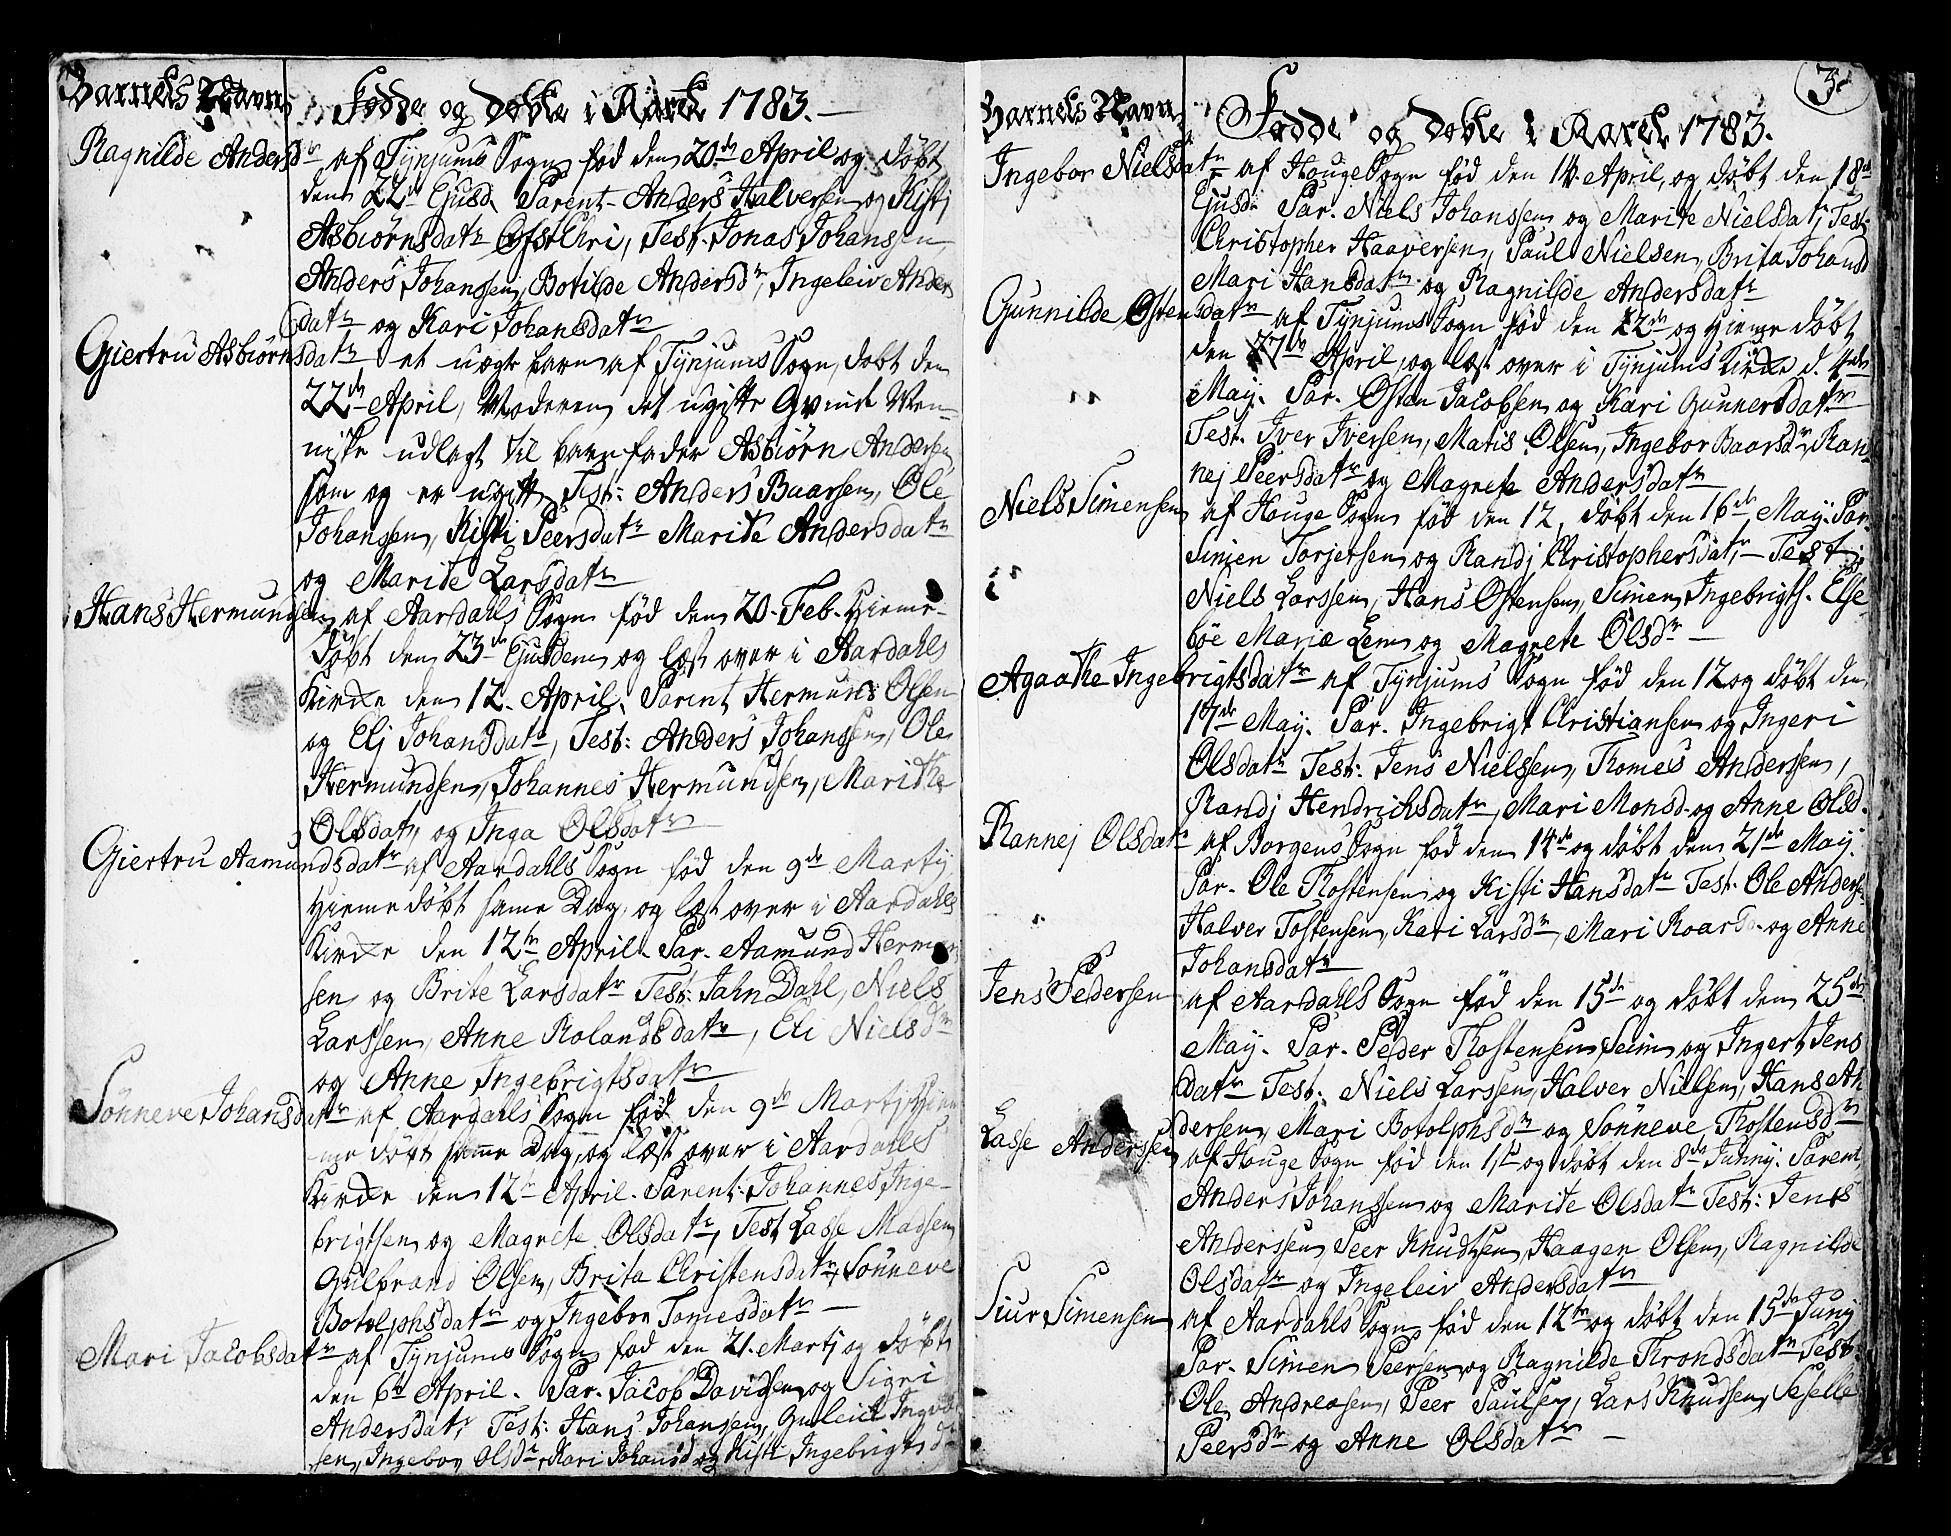 Barnets Navn
Fødde og døbte i Aaret 1783.
Ragnilde Andersdr af Tynjums Sogn fød den 20de April og døbt
den 22de Ejusd. Parent. Anders Halversen og Kisti
Asbiørnsdatr Test. Jonas Johanssen
Anders Johanssen, Botilde Andersdr, Ingeleiv Anders
datr og Kari Johansdatr
Giertru Asbiørnsdatr et uægte barn af Tynjums Sogn, døbt den
22de April, Moderen det ugifte Qvinde Men-
niske udlagt til barnfader Asbiørn Andersen
som og er ugift, Test: Anders Baarsen, Ole
Johansen, Kisti Peersdatr Marite Andersdatr
og Marite Larsdatr
Hans Hermundsen af Aardahls Sogn fød den 20. Feb. Hieme-
døbt den 23de Ejusdem og læst over i Aardahls
Kirke den 12. April. Parent Hermund Olsen
og Elj Johansdatr, Test: Anders Johanssen, Ole
Hermundsen, Johannes Hermundsen, Marithe
Olsdatr, og Inga Olsdatr
Giertru Aamundsdatr af Aardahls Sogn fød den 9de Martij
Hieme døbt same Dag, og læst over i Aardahls
Kirke den 12te April. Par. Aamund Hermun
sen og Brite Larsdatr Test: Jahn Dahl, Niels
Larssen, Anne Rolandsdatr, Eli Nielsdr
og Anne Ingebrigtsdatr
Sønneve Johansdatr af Aardahls Sogn fød den 9de Martj, Hie
me døbt samme Dag, og læst over i Aardahls
Kirke den 12te April. Parent: Johannes Inge-
brigtsen og Magrete Olsdatr, Test Lasse Madsen
Gulbrand Olsen, Brita Christensdatr, Sønneve
Botolphsdatr og Ingebor Tomesdatr
Mari Jacobsdatr af Tynjums Sogn fød den 21. Martj og døbt
den 6te April. Par. Jacob Davidsen og Sigri
Andersdatr, Test: Hans Johansen, Guleick Ingebr
sen, Ingebor Olsdr, Kari Johansd og Kisti Ingebrigtsd
3
Barnets Navn
Fødde og døbte i Aaret 1783.
Ingebor Nielsdatr af Houge Sogn fød den 14. April, og døbt den 18de
Ejusd. Par. Niels Johanssen og Marite Nielsdatr, Test:
Christopher Haaversen, Paul Nielsen, Brita Johansd
Mari Hansdatr og Ragnilde Andersdatr
Gunnilde Østensdatr af Tynjums Sogn fød den 22de og Hieme døbt
den 27de April, og læst over i Tynjums Kirke d. 4de
May. Par. Østen Jacobsen og Kari Gunnersdatr
Test. Iver Iversen, Matis Olsen, Ingebor Baarsdr, Ran
nej Peersdatr og Magrete Andersdatr
Niels Simensen af Houge Sogn fød den 12, døbt den 16de May. Par.
Simen Torjersen og Randj Christophersdatr, Test:
Niels Larssen, Hans Østensen, Simen Ingebrigts. Else
bøe Maria Lem og Magrete Olsdr
Agaathe Ingebrigtsdatr af Tynjums Sogn fød den 12 og døbt den
17de May. Par. Ingebrigt Christiansen og Ingeri
Olsdatr Test: Jens Nielssen, Thomes Anderssen,
Randj Hendrichsdatr, Mari Monsd. og Anne Olsd.
Rannej Olsdatr af Borgens Sogn fød den 14de og døbt den 21de May.
Par. Ole Thostensen og Kisti Hansdatr Test. Ole Anderse
Halver Tostensen, Kari Larsdr, Mari Roars og Anne
Johansdatr
Jens Pedersen af Aardahls Sogn fød den 15de og døbt den 25de
May. Par. Peder Thostensen Seim og Ingert Jens
datr Test: Niels Larssen, Halver Nielsen, Hans An
dersen, Mari Botolphsdr og Sønneve Thostensdr
Lasse Andersen af Houge Sogn fød den 1ste og døbt den 8de Junnij. Parent.
Anders Johanssen og Marite Olsdatr Test: Jens
Anderssen, Peer Knudtsen, Haagen Olsen, Ragnilde
Olsdatr og Ingeleiv Andersdatr
Siur Simensen af Aardahls Sogn fød den 12te og døbt den 15de Junij
Par. Simen Peersen og Ragnilde Throndsdatr Test
Ole Andreasen, Peer Paulsen, Lars Knudsen, Seselle
Peersdr og Anne Olsdatr